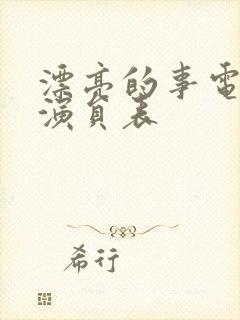 漂亮的事电
演员表
希行